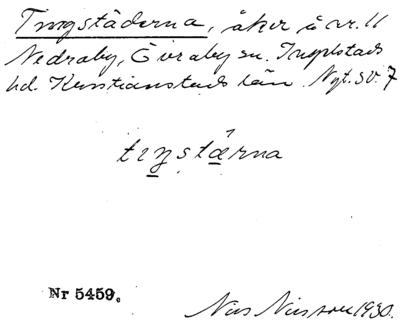 Tingstäderna, åker å nr. 11
Nedraby, Övraby sn. Ingelstads
hd. Kristianstads län. Nyt. sv. 7
tiŋstærna
Nr 5459.
Nils Nilsson 1930.